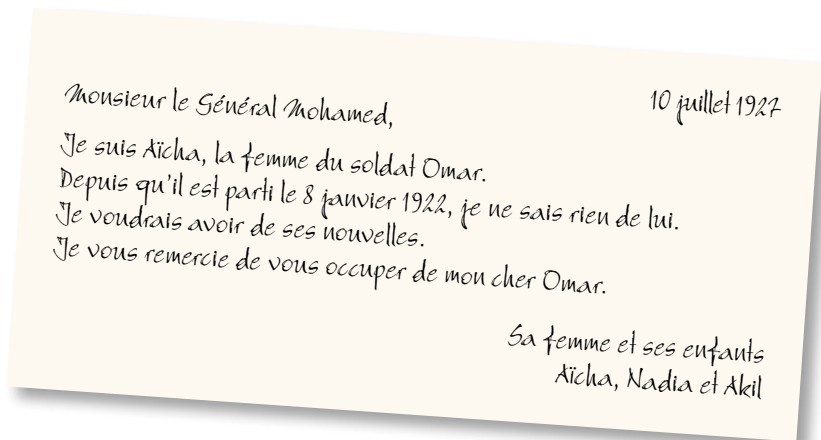 10 juillet 1927
Monsieur le Général Mohamed,
Je suis Aïcha, la femme du soldat Omar.
Depuis qu'il est parti le 8 janvier 1922, je ne sais rien de lui.
Je voudrais avoir de ses nouvelles.
Je vous remercie de vous occuper de mon cher Omar.
Sa femme et ses enfants
Aïcha, Nadia et Akil